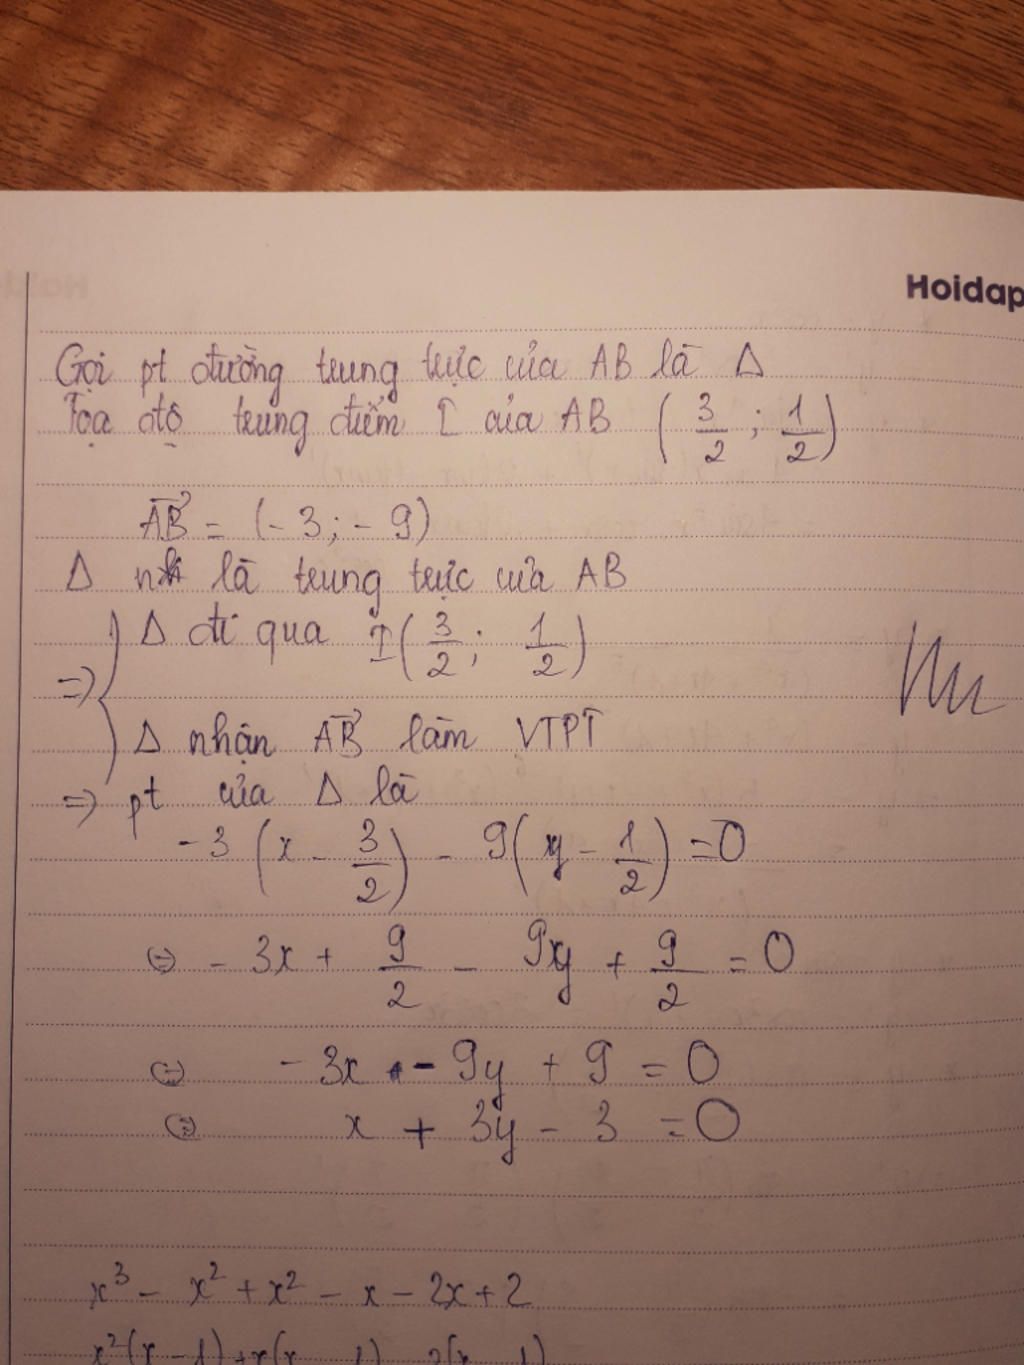 Hoidap
Gọi pt đường trung trực của AB là Δ
Tọa độ trung điểm I của AB (3/2 ; 1/2)
AB⃗ = (-3; -9)
Δ là trung trực của AB
=> { Δ đi qua I(3/2 ; 1/2)
Δ nhận AB⃗ làm VTPT
=> pt của Δ là
-3(x - 3/2) - 9(y - 1/2) = 0
⇔ -3x + 9/2 - 9y + 9/2 = 0
⇔ -3x - 9y + 9 = 0
⇔ x + 3y - 3 = 0
x³ - x² + x² - x - 2x + 2
x²(x - 1) + x(x - 1) - 2(x - 1)